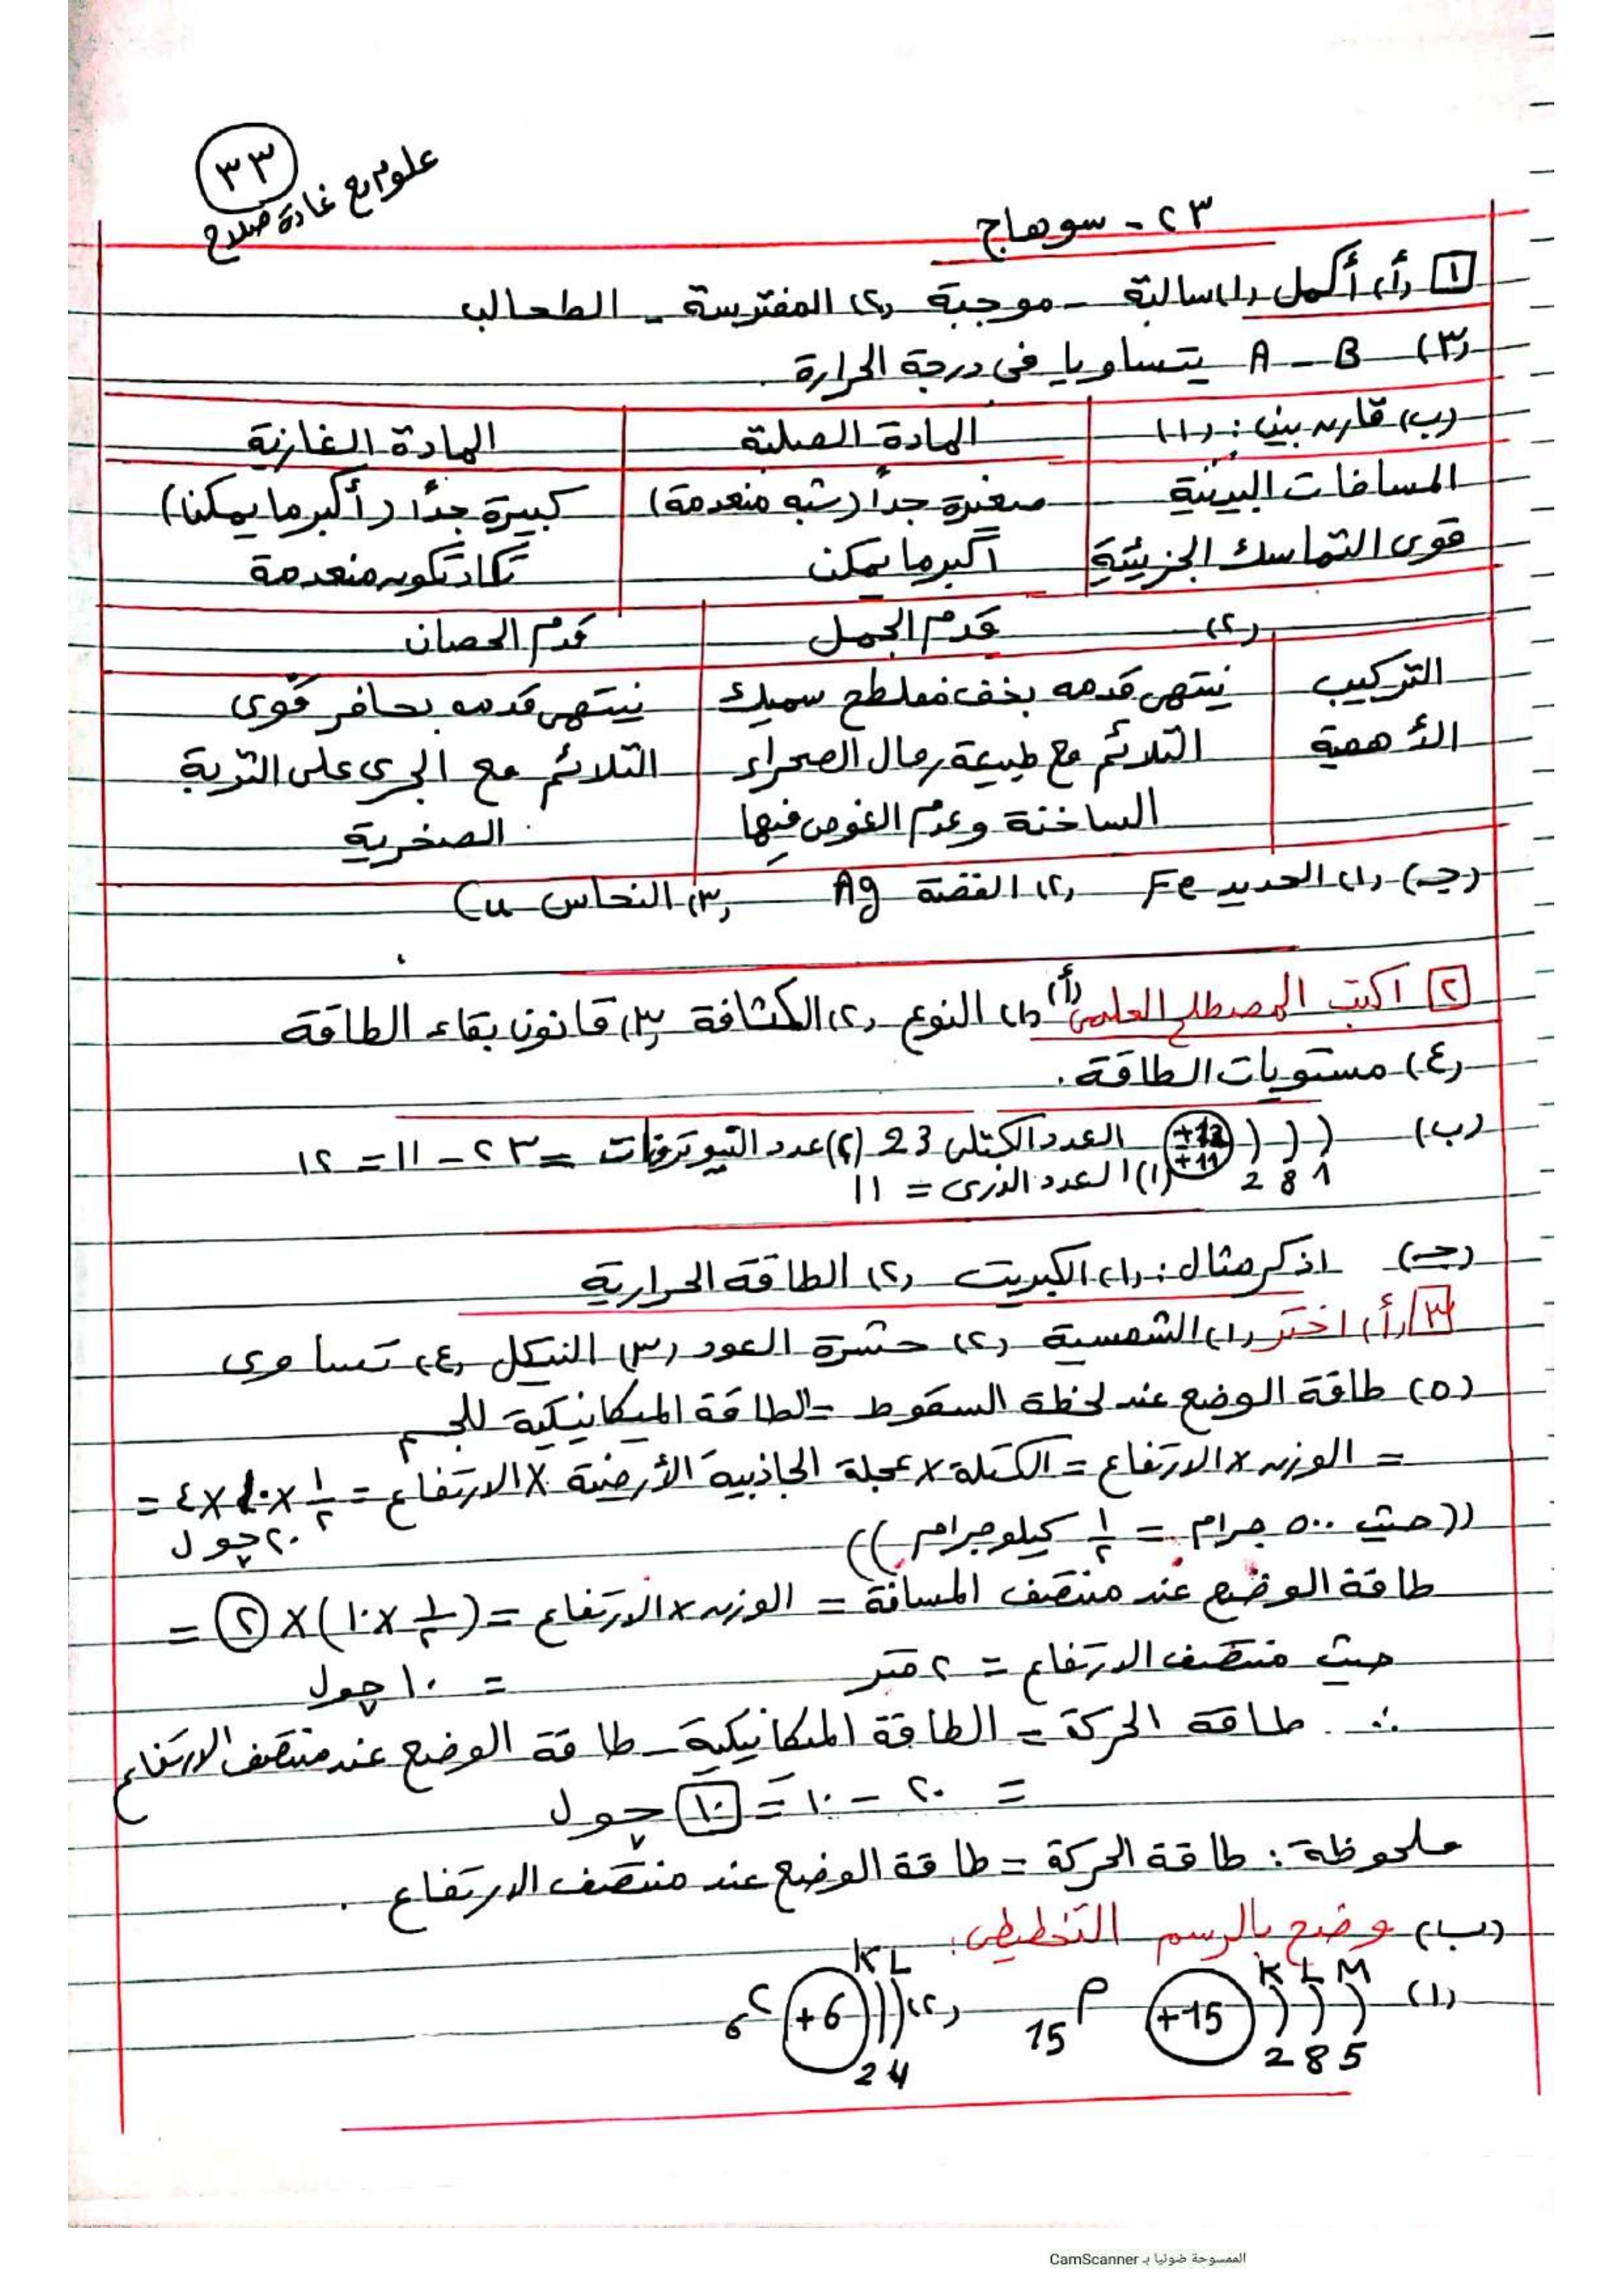 ٣٣
علوم مع غادة صلاح
٢٣ - سوهاج
١ (أ) أكمل (١) سالبة - موجبة (٢) المفترسة - الطحالب
(٣) A - B يتساويا فى درجة الحرارة
(ب) قارن بين: (١) المادة الصلبة المادة الغازية
المسافات البينية صغيرة جداً (شبه منعدمة) كبيرة جداً (أكبر ما يمكن)
قوى التماسك الجزيئية أكبر ما يمكن تكاد تكون منعدمة
(٢) قدم الجمل قدم الحصان
التركيب ينتهى قدمه بخف مفلطح سميك ينتهى قدمه بحافر قوى
الأهمية التلائم مع طبيعة رمال الصحراء التلائم مع الجرى على التربة
الساخنة وعدم الغوص فيها الصخرية
(جـ) (١) الحديد Fe (٢) الفضة Ag (٣) النحاس Cu
٢ اكتب المصطلح العلمى (أ) (١) النوع (٢) الكثافة (٣) قانون بقاء الطاقة
(٤) مستويات الطاقة.
(ب) +12 +11 العدد الكتلى 23 (٢) عدد النيوترونات = ٢٣ - ١١ = ١٢
2 8 1 (١) العدد الذرى = ١١
(جـ) اذكر مثال: (١) الكبريت (٢) الطاقة الحرارية
٣ (أ) اختر (١) الشمسية (٢) حشرة العود (٣) النيكل (٤) تساوى
(٥) طاقة الوضع عند لحظة السقوط = الطاقة الميكانيكية للجسم
= الوزن × الارتفاع = الكتلة × عجلة الجاذبية الأرضية × الارتفاع = ١/٢ × ١٠ × ٤ =
٢٠ جول
((حيث ٥٠٠ جرام = ١/٢ كيلوجرام))
طاقة الوضع عند منتصف المسافة = الوزن × الارتفاع = (١/٢ × ١٠) × ٢ =
حيث منتصف الارتفاع = ٢ متر = ١٠ جول
∴ طاقة الحركة = الطاقة الميكانيكية - طاقة الوضع عند منتصف الارتفاع
= ٢٠ - ١٠ = ١٠ جول
ملحوظة: طاقة الحركة = طاقة الوضع عند منتصف الارتفاع.
(ب) وضح بالرسم التخطيطى:
K L M K L
(١) +15 15P (٢) +6 6C
2 8 5 2 4
الممسوحة ضوئيا بـ CamScanner